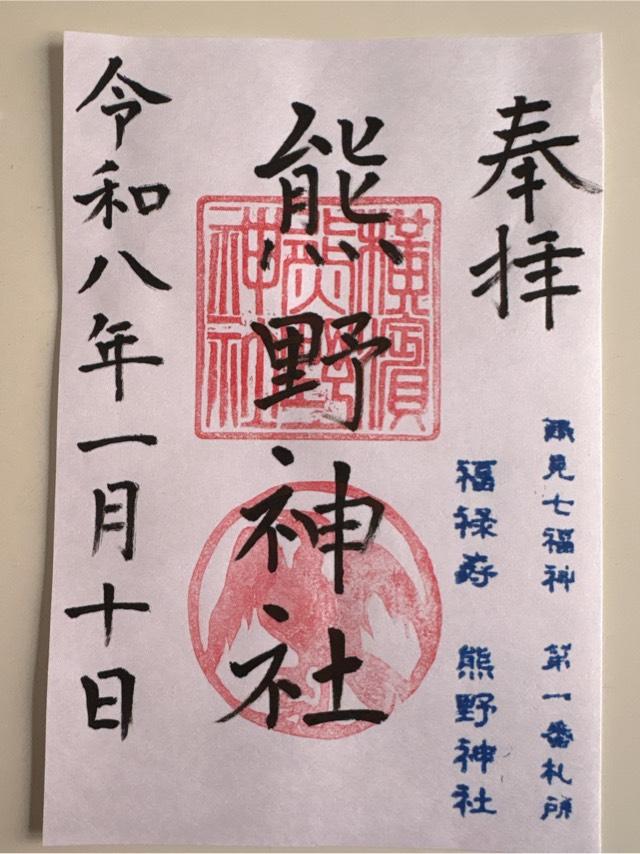 奉拝
鶴見七福神 第一番札所
福禄寿 熊野神社
熊野神社
横濱
熊野
神社
令和八年一月十日